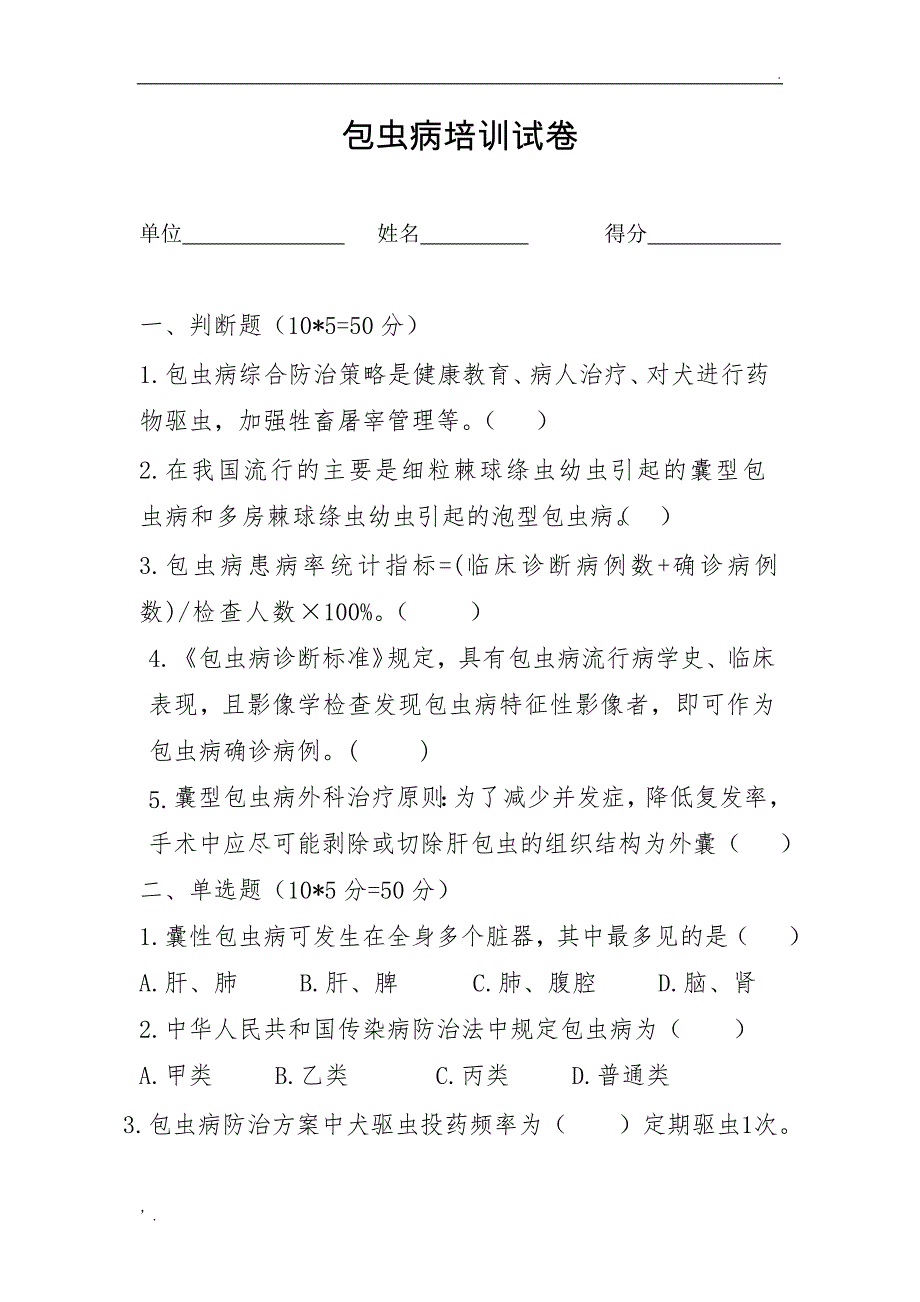 包虫病培训试卷
单位 姓名 得分
一、判断题（10*5=50分）
1.包虫病综合防治策略是健康教育、病人治疗、对犬进行药
物驱虫，加强牲畜屠宰管理等。（ ）
2.在我国流行的主要是细粒棘球绦虫幼虫引起的囊型包
虫病和多房棘球绦虫幼虫引起的泡型包虫病。（ ）
3.包虫病患病率统计指标=(临床诊断病例数+确诊病例
数)/检查人数×100%。（ ）
4.《包虫病诊断标准》规定，具有包虫病流行病学史、临床
表现，且影像学检查发现包虫病特征性影像者，即可作为
包虫病确诊病例。( )
5.囊型包虫病外科治疗原则：为了减少并发症，降低复发率，
手术中应尽可能剥除或切除肝包虫的组织结构为外囊（ ）
二、单选题（10*5分=50分）
1.囊性包虫病可发生在全身多个脏器，其中最多见的是（ ）
A.肝、肺 B.肝、脾 C.肺、腹腔 D.脑、肾
2.中华人民共和国传染病防治法中规定包虫病为（ ）
A.甲类 B.乙类 C.丙类 D.普通类
3.包虫病防治方案中犬驱虫投药频率为（ ）定期驱虫1次。